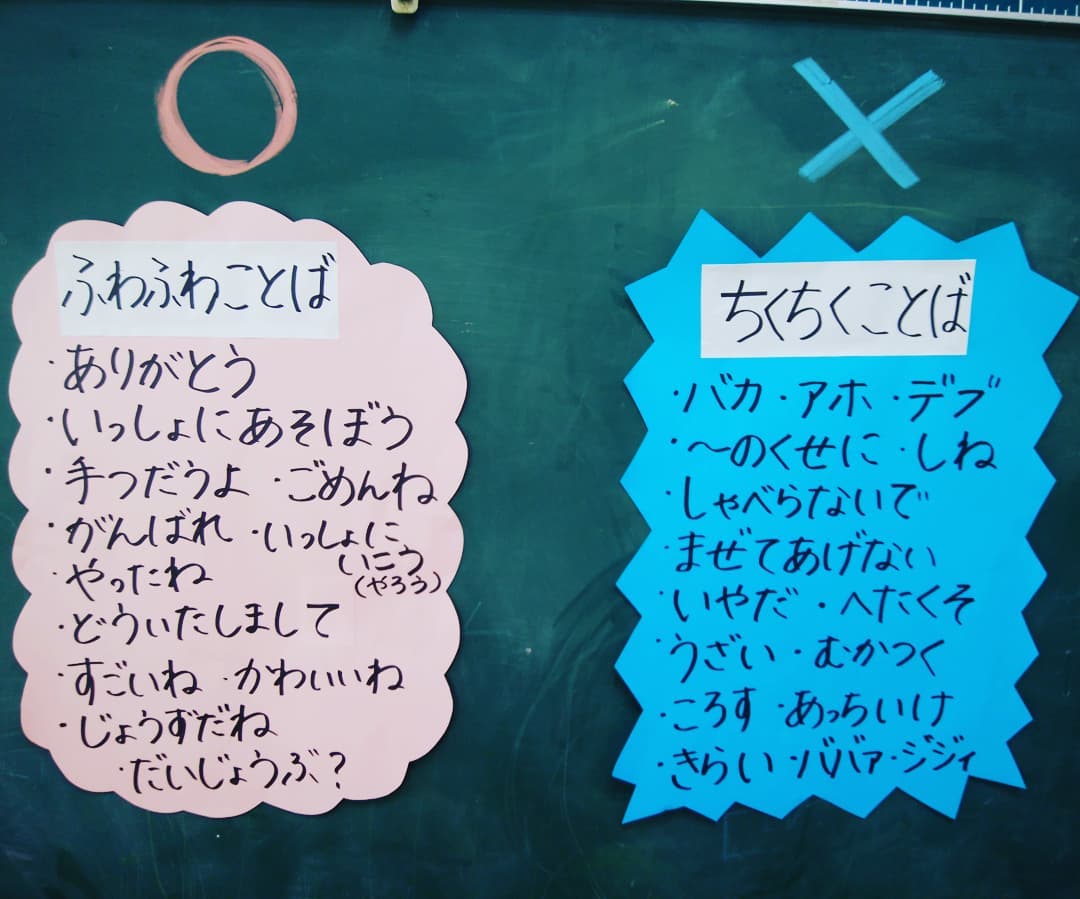 ふわふわことば
・ありがとう
・いっしょにあそぼう
・手つだうよ ・ごめんね
・がんばれ ・いっしょに
いこう
(やろう)
・やったね
・どういたしまして
・すごいね ・かわいいね
・じょうずだね
・だいじょうぶ?
ちくちくことば
・バカ ・アホ ・デブ
・〜のくせに ・しね
・しゃべらないで
・まぜてあげない
・いやだ ・へたくそ
・うざい ・むかつく
・ころす ・あっちいけ
・きらい ・ババァ ・ジジィ